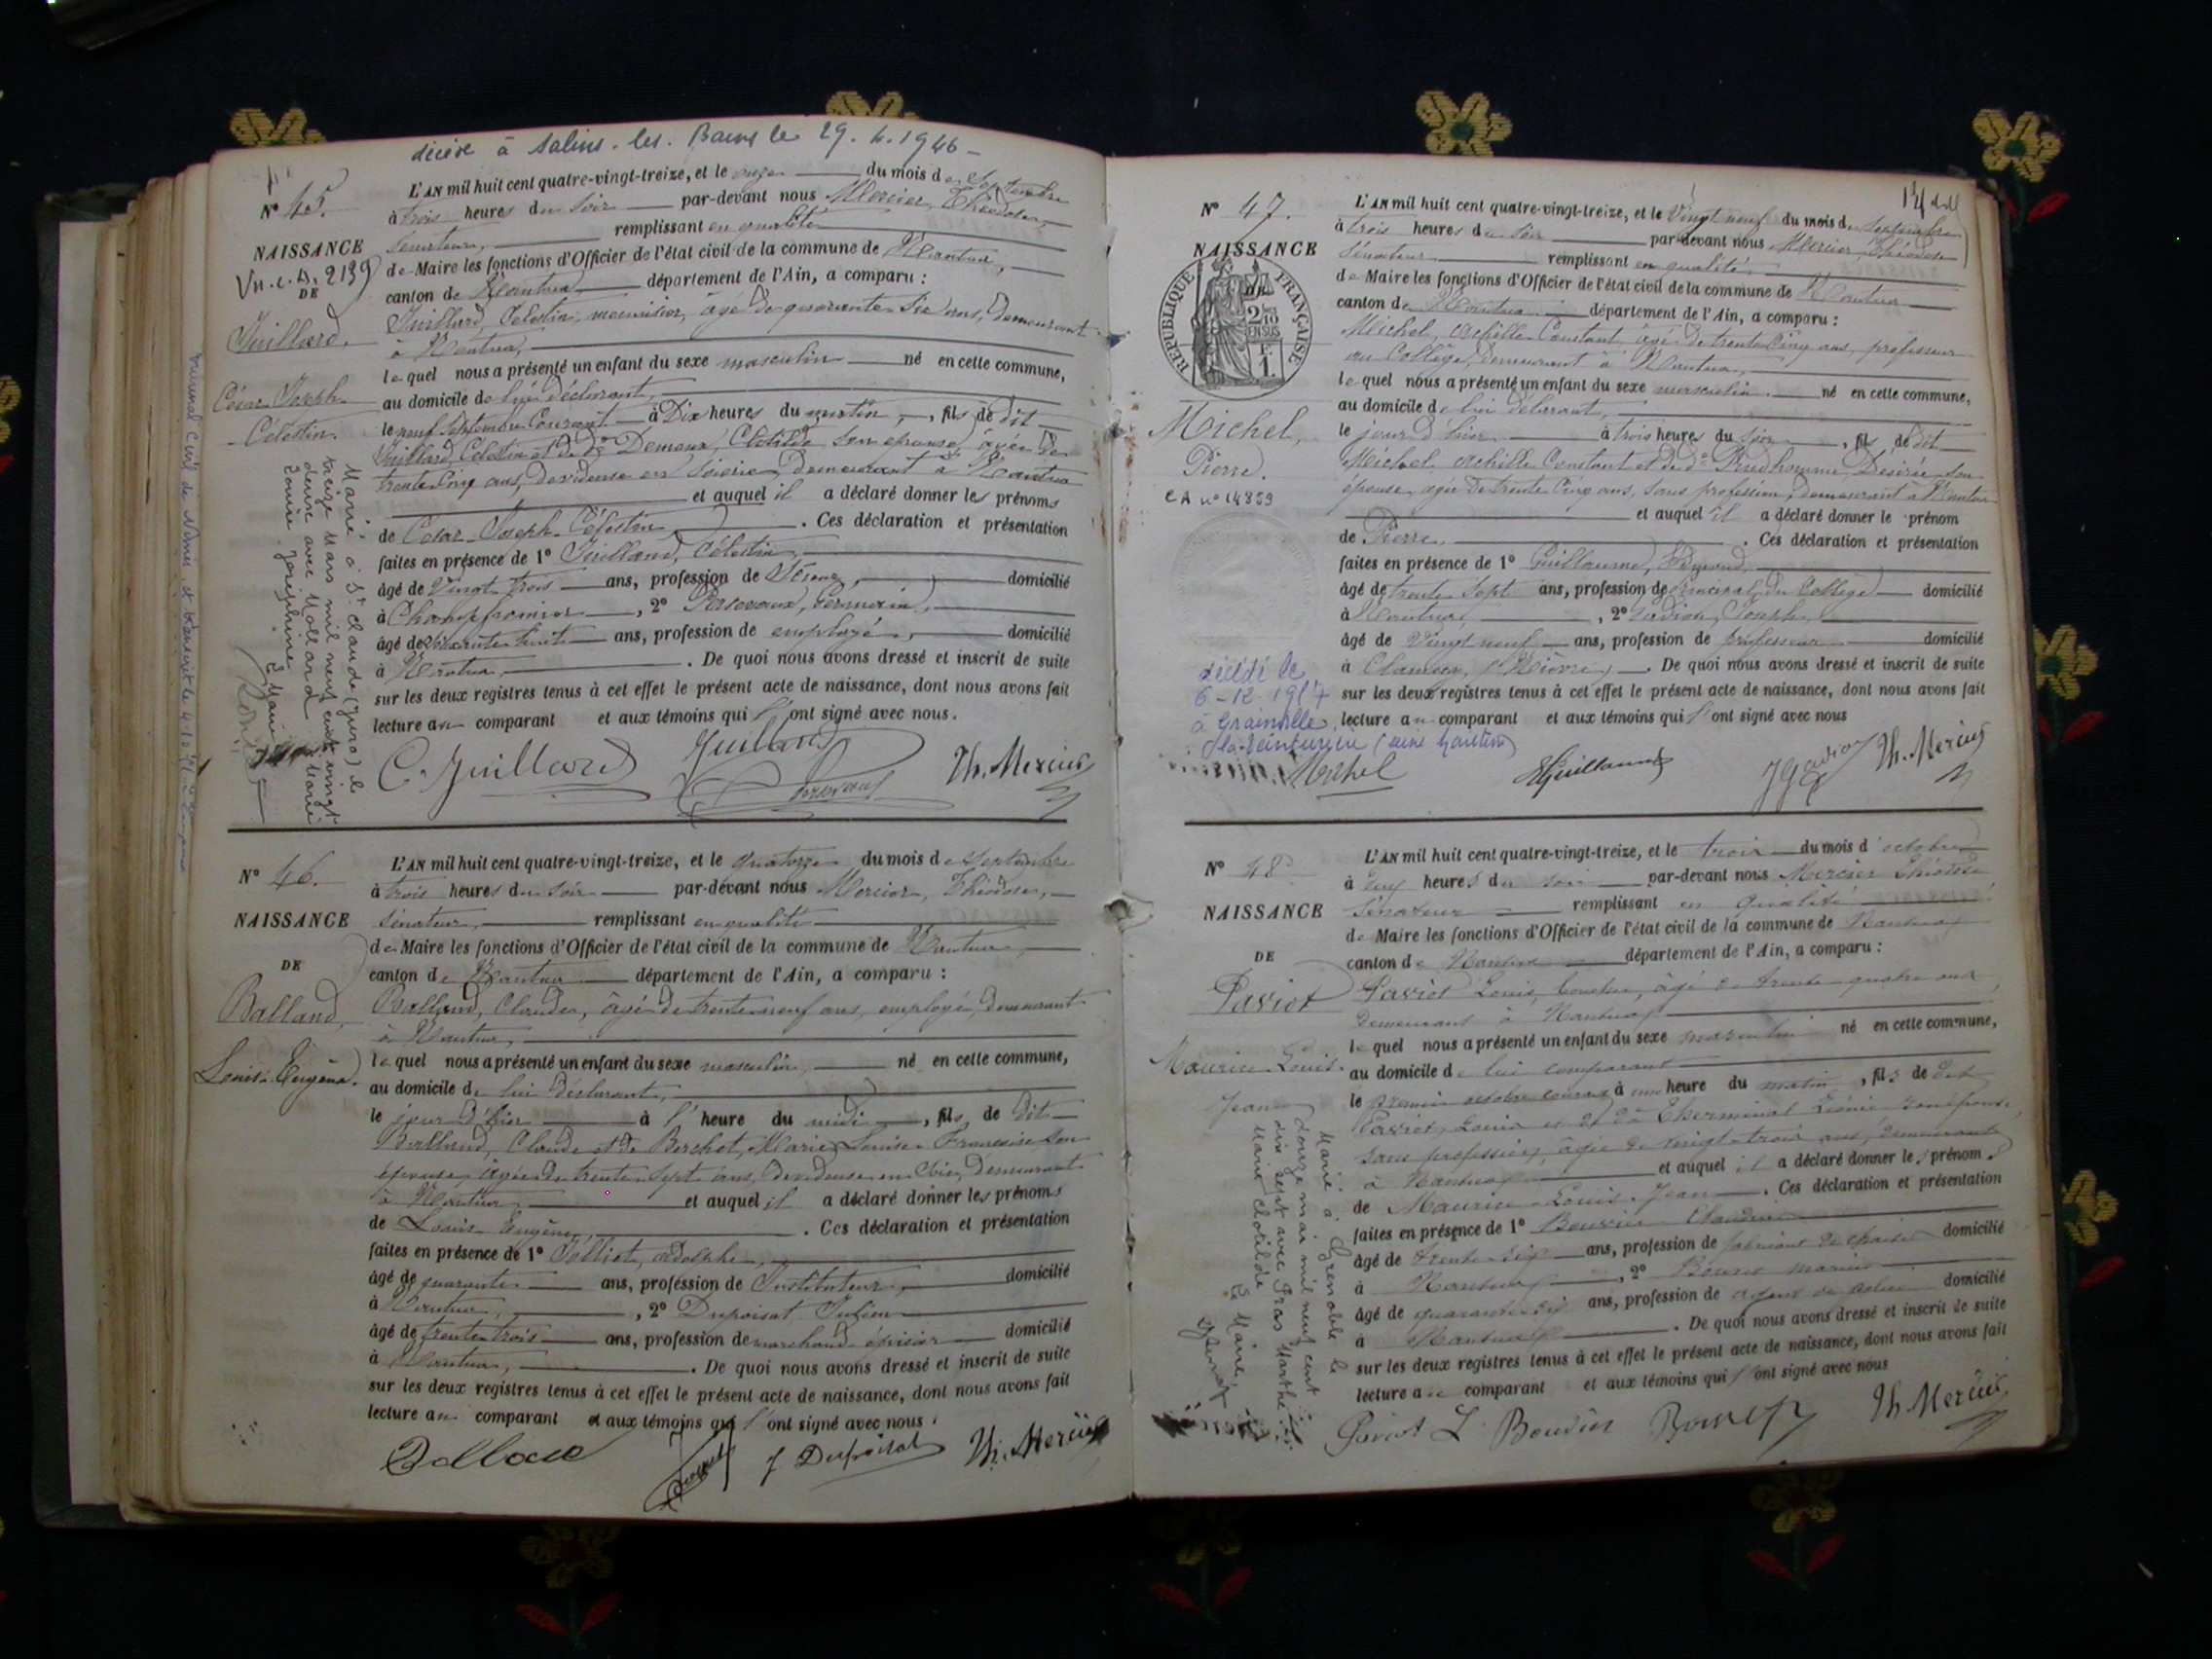 décédé à Salins-les-Bains le 29.4.1946 -
N° 45.
NAISSANCE
DE
Juillard,
César Joseph
Célestin.
L'AN mil huit cent quatre-vingt-treize, et le onze du mois de Septembre
à trois heures du soir par-devant nous Mercier, Théodose,
Sénateur, remplissant en qualité
de Maire les fonctions d'Officier de l'état civil de la commune de Nantua,
canton de Nantua département de l'Ain, a comparu :
Juillard, Célestin, menuisier, âgé de quarante six ans, demeurant
à Nantua,
lequel nous a présenté un enfant du sexe masculin né en cette commune,
au domicile de lui déclarant,
le neuf Septembre Courant à Dix heures du matin, fils de dit
Juillard, Célestin et de de Clotilde son épouse, âgée de
trente cinq ans, dévideuse en soierie, demeurant à Nantua
et auquel il a déclaré donner les prénoms
de César Joseph Célestin. Ces déclaration et présentation
faites en présence de 1° Juillard, Célestin,
âgé de vingt trois ans, profession de domicilié
à Champfromier, 2° Germain,
âgé de huit ans, profession de employé, domicilié
à Nantua. De quoi nous avons dressé et inscrit de suite
sur les deux registres tenus à cet effet le présent acte de naissance, dont nous avons fait
lecture au comparant et aux témoins qui l'ont signé avec nous.
C. Juillard Juillard Th. Mercier
Marié à St Claude (Jura) le
treize Mars mil neuf cent vingt
deux avec Mollard Marie
Louise Joséphine
Le Maire
N° 46.
NAISSANCE
DE
Balland,
Louis Eugène.
L'AN mil huit cent quatre-vingt-treize, et le quatorze du mois de Septembre
à trois heures du soir par-devant nous Mercier, Théodose,
sénateur, remplissant en qualité
de Maire les fonctions d'Officier de l'état civil de la commune de Nantua,
canton de Nantua département de l'Ain, a comparu :
Balland, Claude, âgé de trente neuf ans, employé, demeurant
à Nantua,
lequel nous a présenté un enfant du sexe masculin, né en cette commune,
au domicile de lui déclarant,
le jour d'hier à l'heure du midi, fils de dit
Balland, Claude et de Berchet, Marie Louise Françoise son
épouse, âgée de trente sept ans, dévideuse en soie, demeurant
à Nantua, et auquel il a déclaré donner les prénoms
de Louis Eugène. Ces déclaration et présentation
faites en présence de 1° Adolphe,
âgé de quarante ans, profession de Instituteur, domicilié
à Nantua, 2° Dupoisat Julien
âgé de trente trois ans, profession de marchand épicier domicilié
à Nantua, De quoi nous avons dressé et inscrit de suite
sur les deux registres tenus à cet effet le présent acte de naissance, dont nous avons fait
lecture au comparant et aux témoins qui l'ont signé avec nous.
Balland J Dupoisat Th. Mercier
N° 47.
NAISSANCE
REPUBLIQUE FRANÇAISE
2/10
EN SUS
Michel,
Pierre.
CA n° 14859
L'AN mil huit cent quatre-vingt-treize, et le Vingt neuf du mois de Septembre
à trois heures du soir par-devant nous Mercier, Théodose
Sénateur remplissant en qualité,
de Maire les fonctions d'Officier de l'état civil de la commune de Nantua
canton de Nantua département de l'Ain, a comparu :
Michel, Achille Constant, âgé de trente cinq ans, professeur
au Collège, demeurant à Nantua,
lequel nous a présenté un enfant du sexe masculin né en cette commune,
au domicile de lui déclarant,
le jour d'hier à trois heures du soir, fils de dit
Michel, Achille Constant et de de Prudhomme Désirée son
épouse âgée de trente cinq ans, sans profession, demeurant à Nantua
et auquel il a déclaré donner le prénom
de Pierre. Ces déclaration et présentation
faites en présence de 1° Guillaume, Edmond
âgé de trente sept ans, profession de Principal du Collège domicilié
à Nantua, 2° Joseph,
âgé de Vingt neuf ans, profession de professeur domicilié
à Clamecy, (Nièvre). De quoi nous avons dressé et inscrit de suite
sur les deux registres tenus à cet effet le présent acte de naissance, dont nous avons fait
lecture au comparant et aux témoins qui l'ont signé avec nous
décédé le
à Grainville
la-Teinturière (Seine Maritime)
Michel Guillaume Th. Mercier
N° 48
NAISSANCE
DE
Paviot
Maurice Louis
Jean
L'AN mil huit cent quatre-vingt-treize, et le trois du mois d'octobre
à heures du soir par-devant nous Mercier Théodose
Sénateur remplissant en qualité
de Maire les fonctions d'Officier de l'état civil de la commune de Nantua
canton de Nantua département de l'Ain, a comparu :
Paviot Louis, âgé de trente quatre ans,
demeurant à Nantua
lequel nous a présenté un enfant du sexe masculin né en cette commune,
au domicile de lui comparant
le premier octobre courant à une heure du matin, fils de dit
Paviot, Louis et de son épouse,
sans profession, âgée de vingt-trois ans, demeurant
à Nantua et auquel il a déclaré donner les prénoms
de Maurice Louis Jean. Ces déclaration et présentation
faites en présence de 1° Bouvier
âgé de trente six ans, profession de fabricant de chaises domicilié
à Nantua, 2°
âgé de quarante six ans, profession de agent de police domicilié
à Nantua. De quoi nous avons dressé et inscrit de suite
sur les deux registres tenus à cet effet le présent acte de naissance, dont nous avons fait
lecture au comparant et aux témoins qui l'ont signé avec nous
Marié à Grenoble le
douze mai mil neuf cent
dix sept avec Gras Marthe
Marie Clotilde
Le Maire,
Paviot L Th. Mercier